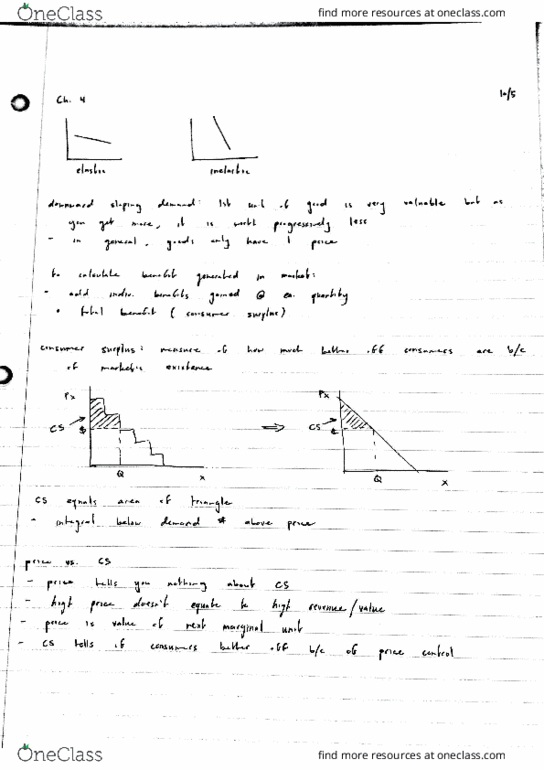 OneClass
find more resources at oneclass.com
Ch. 4
10/5
elastic
inelastic
downward sloping demand: 1st unit of good is very valuable but as
you get more, it is worth progressively less
- in general, goods only have 1 price
to calculate benefit generated in market:
- add indiv. benefits gained @ ea. quantity
• total benefit (consumer surplus)
consumer surplus: measure of how much better off consumers are b/c
of market's existence
Px
CS
$
Q
x
⇒
Px
CS
Q
x
CS equals area of triangle
- integral below demand & above price
price vs. CS
- price tells you nothing about CS
- high price doesn't equate to high revenue/value
- price is value of next marginal unit
- CS tells if consumers better off b/c of price control
OneClass
find more resources at oneclass.com